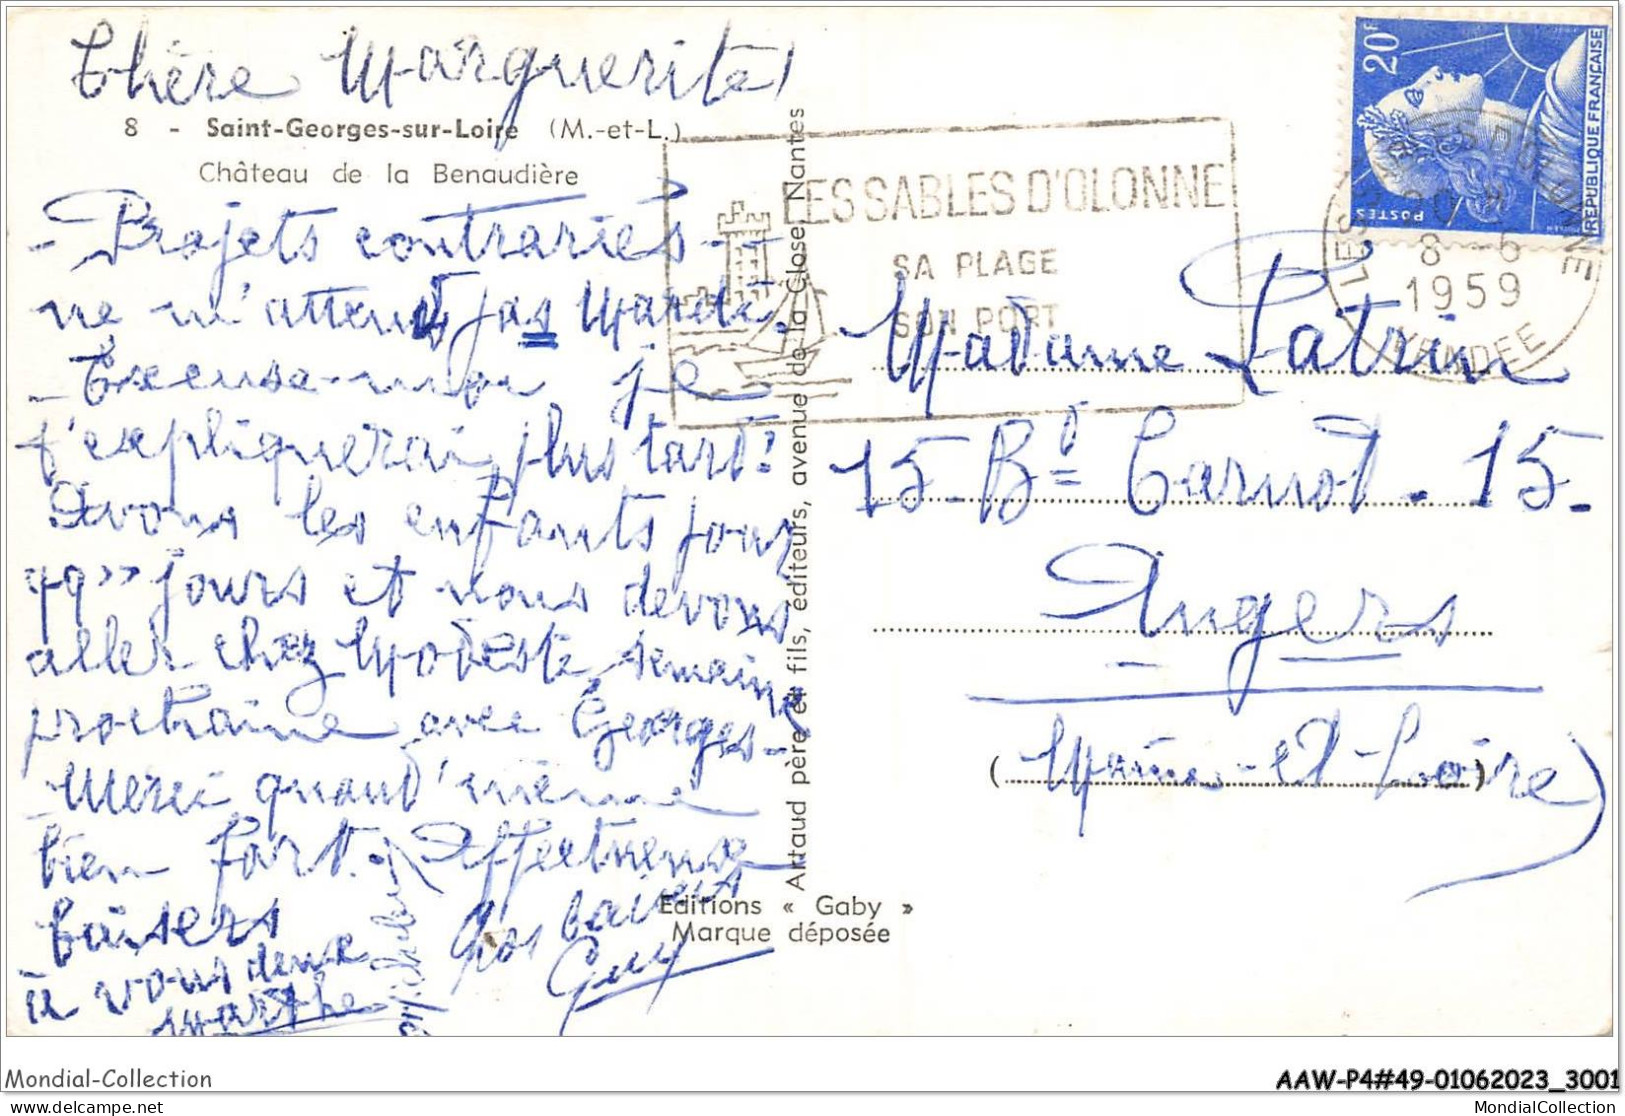 Chère Marguerite,
8 - Saint-Georges-sur-Loire (M.-et-L.)
Château de la Benaudière
- Projets contrariés -
ne m'attends pas Mardi.
- Excuse-moi je
t'expliquerai plus tard!
Avons les enfants pour
qq jours et nous devons
aller chez Modeste semaine
prochaine avec Georges -
- Merci quand même
bien fort. - Affectueux
baisers
à vous deux
Marthe
Gros baisers
Guy
Artaud père et fils, éditeurs, avenue de la Close, Nantes
Editions « Gaby »
Marque déposée
LES SABLES D'OLONNE
SA PLAGE
SON PORT
20F
POSTES
REPUBLIQUE FRANÇAISE
LES SABLES D'OLONNE
8 - 6
1959
VENDEE
Madame Patrin
15 - Bd Carnot - 15 -
Angers
(Maine-et-Loire)
Mondial-Collection
delcampe.net
AAW-P4#49-01062023_3001
MondialCollection